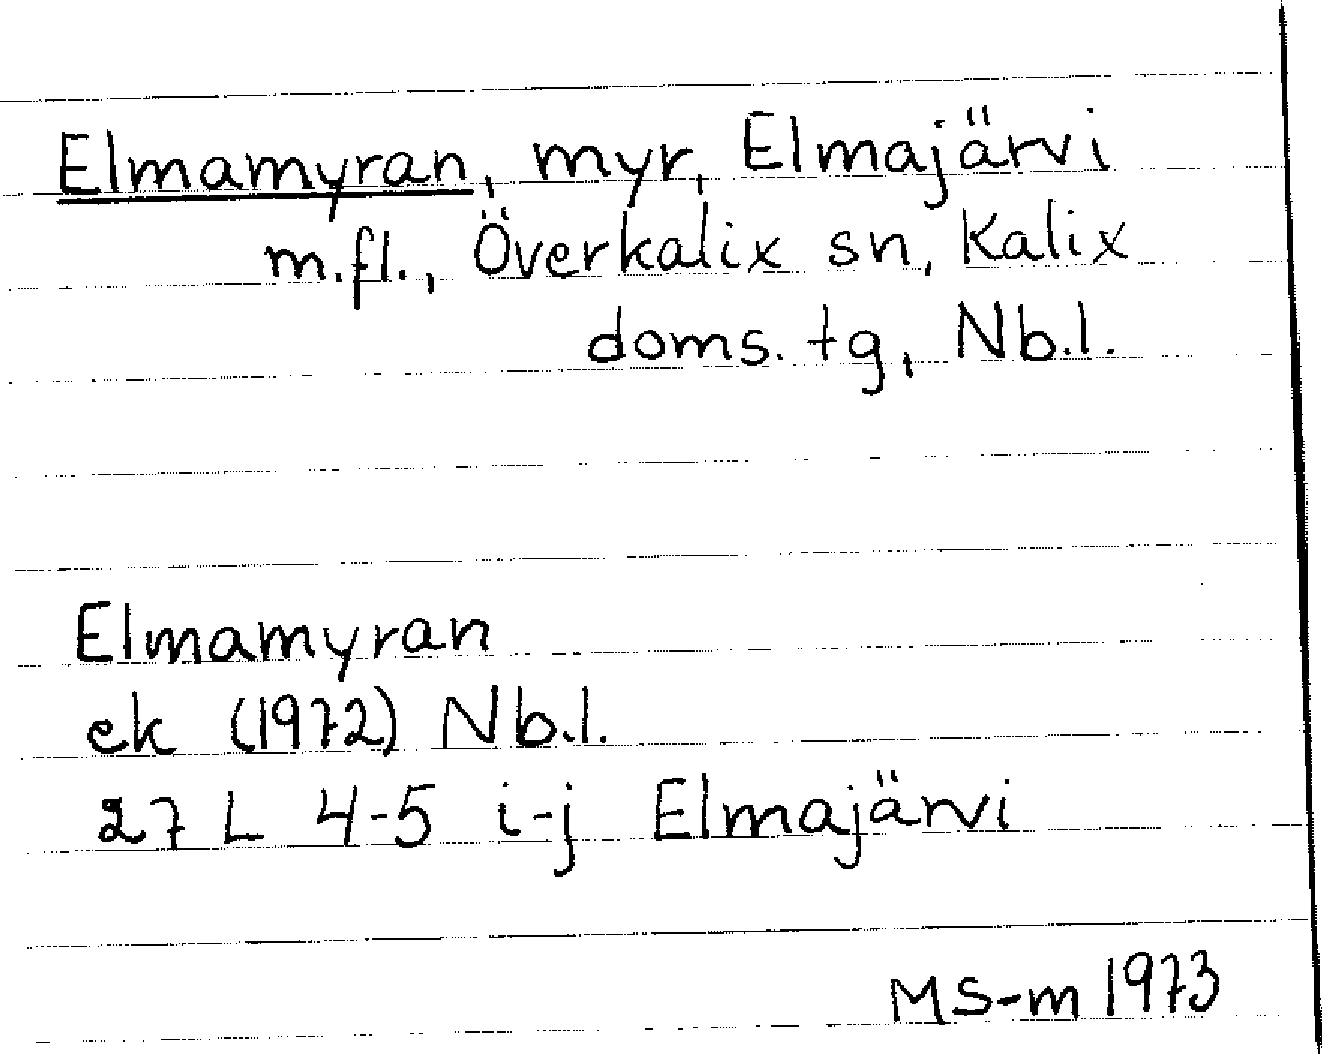 Elmamyran, myr, Elmajärvi
m.fl., Överkalix sn, Kalix
doms. tg, Nb.l.
Elmamyran
ek (1972) Nb.l.
27 L 4-5 i-j Elmajärvi
MS-m 1973